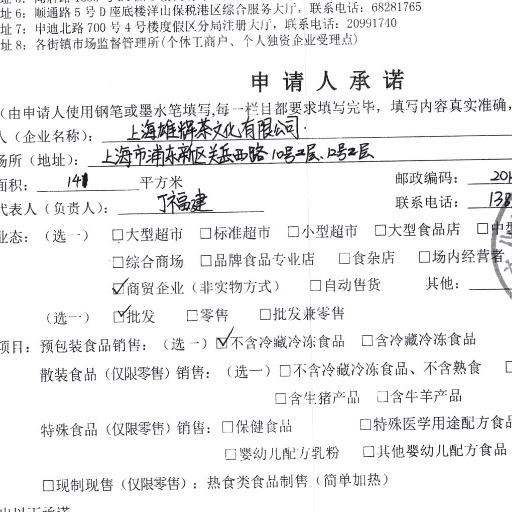 址6：顺通路5号D座底楼洋山保税港区综合服务大厅，联系电话：68281765
址7：申迪北路700号4号楼度假区分局注册大厅，联系电话：20991740
址8：各街镇市场监督管理所(个体工商户、个人独资企业受理点)
申请人承诺
（由申请人使用钢笔或墨水笔填写,每一栏目都要求填写完毕，填写内容真实准确，
人（企业名称）：上海雄辉茶文化有限公司
场所（地址）：上海市浦东新区关岳西路10号2层、12号2层
面积：141 平方米 邮政编码：201
代表人（负责人）：丁福建 联系电话：138
业态：（选一）□大型超市 □标准超市 □小型超市 □大型食品店 □中型
□综合商场 □品牌食品专业店 □食杂店 □场内经营者
☑商贸企业（非实物方式） □自动售货 其他：
（选一） ☑批发 □零售 □批发兼零售
项目：预包装食品销售：（选一）☑不含冷藏冷冻食品 □含冷藏冷冻食品
散装食品（仅限零售）销售：（选一）□不含冷藏冷冻食品、不含熟食 □
□含生猪产品 □含牛羊产品
特殊食品（仅限零售）销售：□保健食品 □特殊医学用途配方食品
□婴幼儿配方乳粉 □其他婴幼儿配方食品
□现制现售（仅限零售）：热食类食品制售（简单加热）